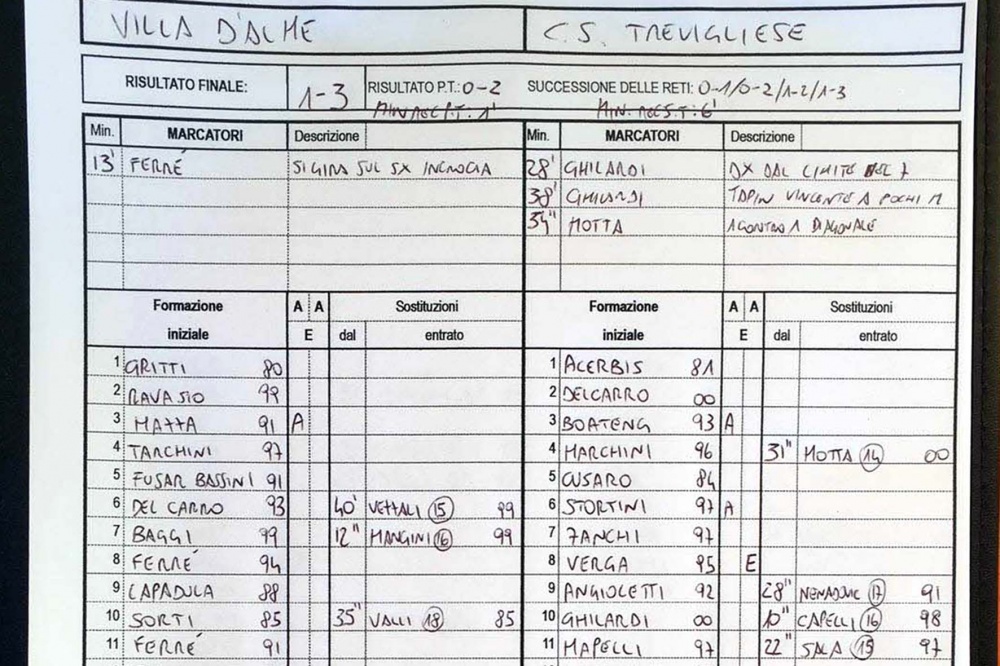 VILLA D'ALMÉ C.S. TREVIGLIESE
RISULTATO FINALE: 1-3 RISULTATO P.T.: 0-2 SUCCESSIONE DELLE RETI: 0-1/0-2/1-2/1-3
MIN REC P.T: 1' MIN. REC S.T: 6'
Min. MARCATORI Descrizione Min. MARCATORI Descrizione
13' FERRÉ SI GIRA SUL SX INCROCIA 28' GHILARDI DX DAL LIMITE DEL 7
38' GHILARDI TAPIN VINCENTE A POCHI M
34" MOTTA 1 CONTRO 1 DIAGONALE
Formazione A A Sostituzioni Formazione A A Sostituzioni
iniziale E dal entrato iniziale E dal entrato
1 GRITTI 80 1 ACERBIS 81
2 RAVASIO 99 2 DELCARRO 00
3 91 A 3 BOATENG 93 A
4 TARCHINI 97 4 MARCHINI 96 31" MOTTA 14 00
5 FUSAR BASSINI 91 5 CUSARO 84
6 DEL CARRO 93 40' 15 99 6 STORTINI 97 A
7 BAGGI 99 12" MANGINI 16 99 7 ZANCHI 97
8 FERRÉ 94 8 VERGA 95 E
9 CAPADULA 88 9 ANGIOLETTI 92 28" NENADOVIC 17 91
10 SORTI 85 35" VALLI 18 85 10 GHILARDI 00 10" CAPELLI 16 98
11 FERRÉ 91 11 MAPELLI 97 22" SALA 15 97